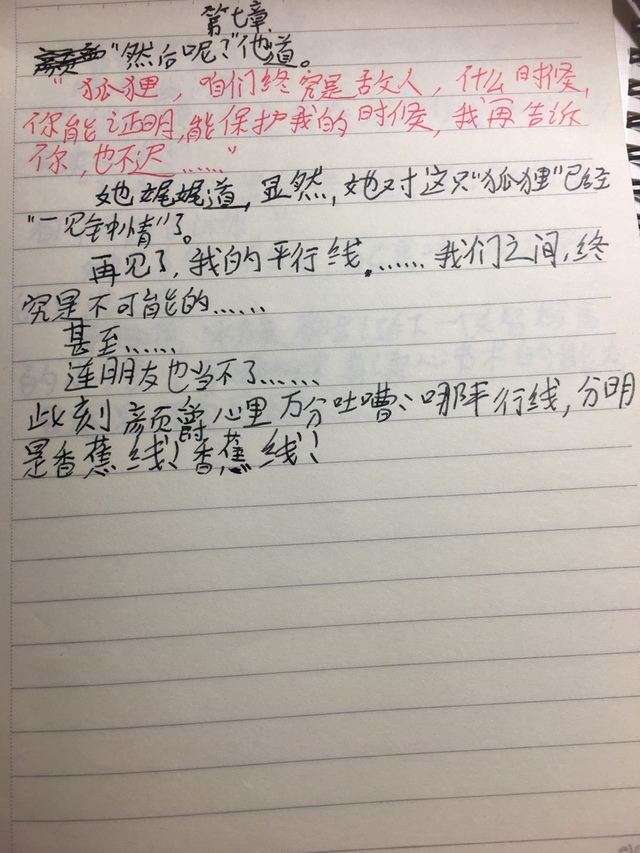 第七章
"然后呢?"他道。
"狐狸,咱们终究是敌人,什么时候,
你能证明,能保护我的时候,我再告诉
你,也不迟……"
她娓娓道,显然,她对这只"狐狸"已经
"一见钟情"了。
再见了,我的平行线。……我们之间,终
究是不可能的……
甚至……
连朋友也当不了……
此刻颜爵心里万分吐嘈:哪平行线,分明
是香蕉线!香蕉线!